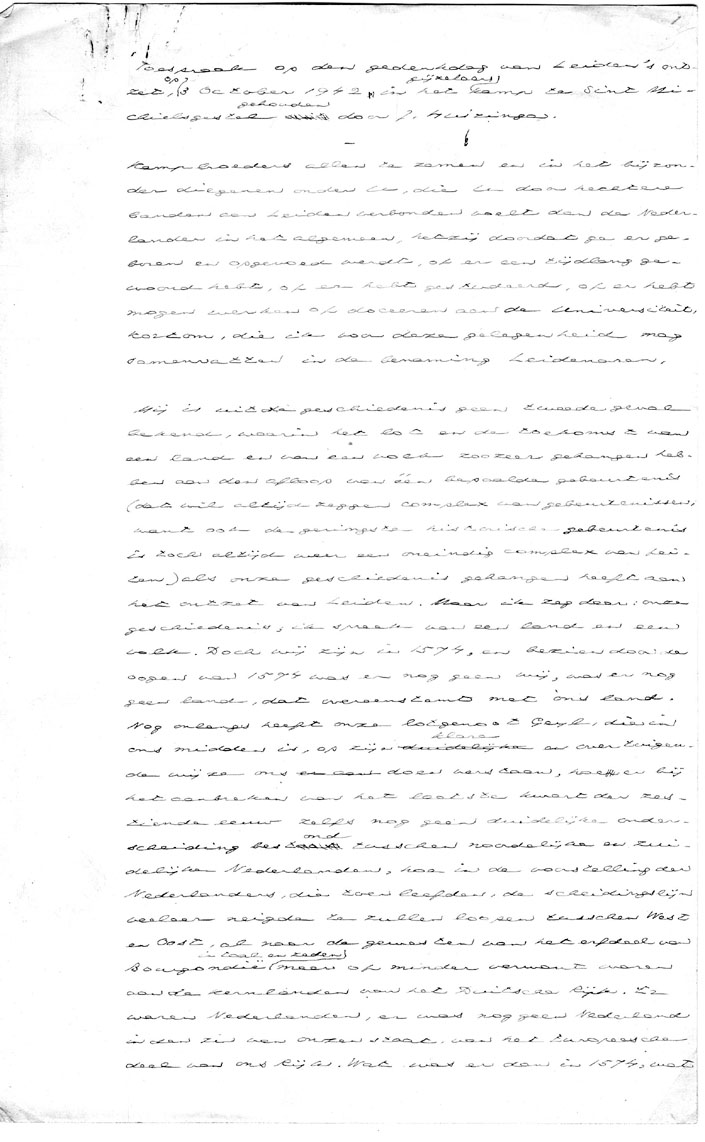 1
Toespraak op den gedenkdag van Leiden's ont-
zet, op 3 October 1942, in het gijzelaars kamp te Sint Mi-
chielsgestel gehouden door J. Huizinga.
Kampbroeders allen te zamen en in het bijzon-
der diegenen onder U, die U door hechtere
banden aan Leiden verbonden voelt dan de Neder-
lander in het algemeen, hetzij doordat ge er ge-
boren en opgevoed werdt, of er een tijdlang ge-
woond hebt, of er hebt gestudeerd, of er hebt
mogen werken of doceeren aan de Universiteit,
kortom, die ik voor deze gelegenheid mag
samenvatten in de benaming Leidenaren.
Mij is uit de geschiedenis geen tweede geval
bekend, waarin het lot en de toekomst van
een land en van een volk zoozeer gehangen heb-
ben aan den afloop van één bepaalde gebeurtenis
(dat wil altijd zeggen complex van gebeurtenissen,
want ook de geringste historische gebeurtenis
is toch altijd weer een oneindig complex van fei-
ten) als onze geschiedenis gehangen heeft aan
het ontzet van Leiden. Maar ik zeg daar: onze
geschiedenis, ik spreek van een land en een
volk. Doch wij zijn in 1574, en bezien door de
oogen van 1574 was er nog geen wij, was er nog
geen land, dat overeenstemt met ons land.
Nog onlangs heeft onze lotgenoot Geyl, die in
ons midden is, op zijn klare en overtuigen-
de wijze ons doen verstaan, hoe er bij
het aanbreken van het laatste kwart der zes-
tiende eeuw zelfs nog geen duidelijke onder-
scheiding bestond tusschen noordelijke en zui-
delijke Nederlanden, hoe in de voorstelling der
Nederlanders, die toen leefden, de scheidingslijn
veeleer neigde te zullen loopen tusschen West
en Oost, al naar de gewesten van het erfdeel van
Bourgondië in taal en zeden meer of minder verwant waren
aan de kernlanden van het Duitsche Rijk. Er
waren Nederlanden, er was nog geen Nederland
in den zin van onzen staat, van het Europeesche
deel van ons Rijk. Wat was er dan in 1574, wat